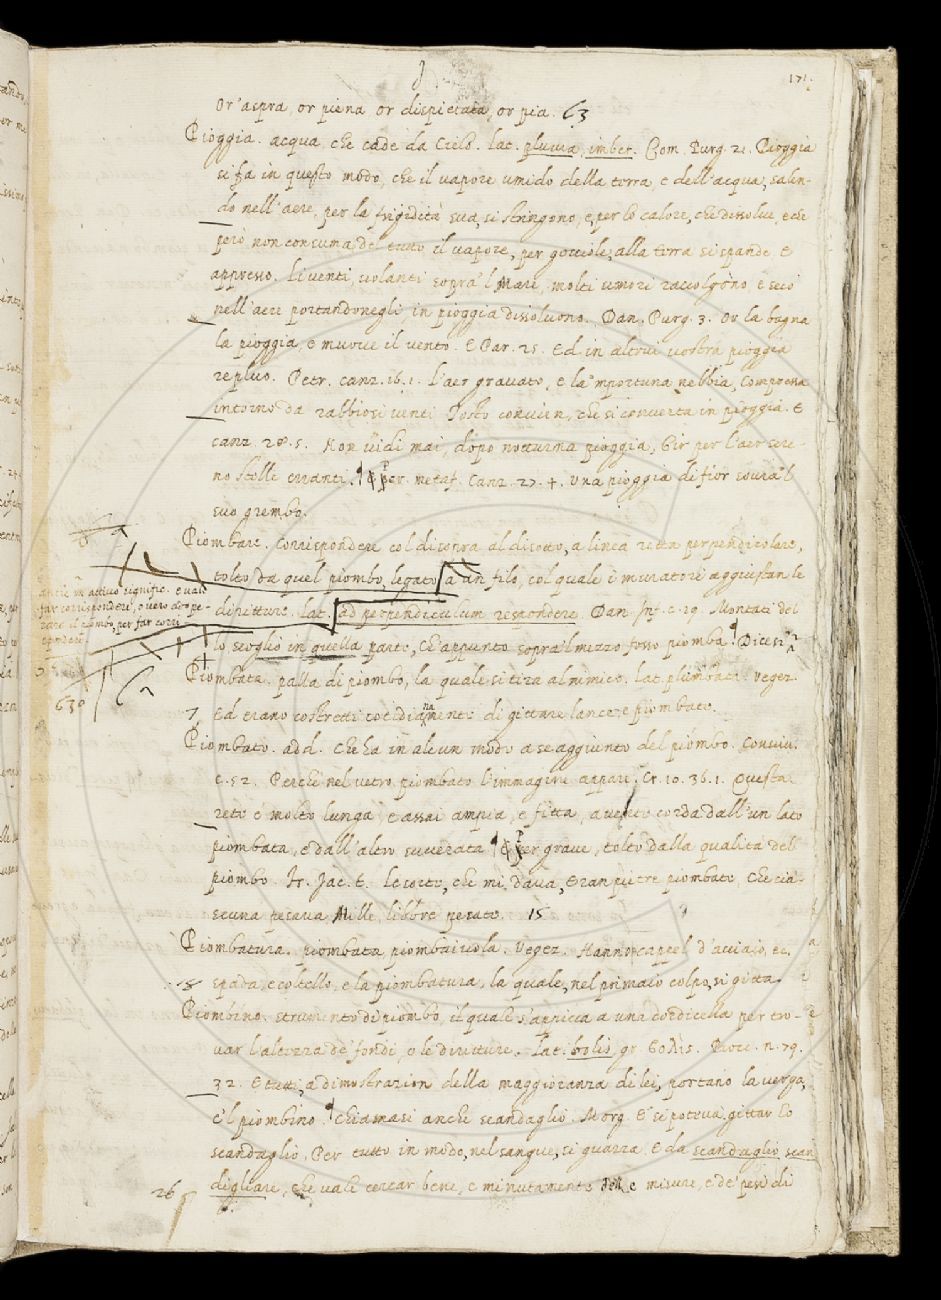 171.
or' aspra, or piena or dispietata, or pia. 63
Pioggia. acqua, che cade da Cielo. lat. pluuia, imber. Com. Purg. 21. Pioggia
si fa in questo modo, che il vapore umido della terra, e dell'acqua, salen-
do nell'aere, per la frigidità sua, si stringono, e, per lo calore, che dissolue, e che
però non consuma, del tutto il vapore, per gocciole, alla terra si spande. E
appresso. li venti, uolanti sopra 'l Mare, molti umori raccolgono, e seco
nell'aere portandonegli in pioggia dissoluono. Dan. Purg. 3. Or la bagna
la pioggia, e muoue il vento. E Par. 25. Ed in altrui vostra pioggia
repluo. Petr. canz. 16. 1. L'aer grauato, e la 'mportuna nebbia, Compressa
intorno da rabbiosi venti Tosto conuien, che si conuerta in pioggia. E
canz. 28. 5. Non uidi mai, dopo notturna pioggia, Gir per l'aer sere-
no stelle erranti. Per metaf. Canz. 27. 4. Una pioggia di fior soura 'l
suo grembo.
Piombare. Corrispondere col disopra al disotto, a linea retta perpendicolare,
tolto da quel piombo, legato a un filo, col quale i muratori aggiustan le
diritture. lat. ad perpendiculum respondere. Dan. Inf. c. 19. Montati del-
lo scoglio in quella parte, Ch'appunto sopra 'l mezzo fosso piomba. Dicesi
anche in attiuo signific. e uale
far corrispondere, o uero adope-
rare il piombo, per far corri-
spondere.
630
Piombata. palla di piombo, la quale si tira al nimico. lat. plumbata. Vegez.
7. Ed erano costretti cotidianamente di gittare lance, e piombate.
Piombato. add. Che ha in alcun modo a se aggiunto del piombo. Conuiu.
c. 52. Perchè nel uetro piombato l'immagine appare. Cr. 10. 36. 1. Questa
rete è molto lunga, e assai ampia, e fitta, a corda dall'un lato
piombata, e dall'altro suuerata Per graue, tolto dalla qualità del
piombo. Fr. Jac. T. Le corto, che mi daua, Eran pietre piombate, Che cia-
scuna pesaua Mille libbre pesate. 15
Piombatura. piombata, piombaiuola. Vegez. Hanno cappel d'acciaio, ec.
18 spada, e coltello, e la piombatura, la quale, nel primaio colpo, si gitta.
Piombino. strumento di piombo, il quale s'appicca a una cordicella per tro-
uar l'altezza de' fondi, o le diritture. lat. bolis, gr. βολίς. Nou. n. 79.
32. E tutti, a dimostrazion della maggioranza di lei, portano la verga,
e 'l piombino. Chiamasi anche scandaglio. Morg. E si poteua gittar lo
scandaglio. Per tutto in modo, nel sangue, si guazza. E da scandaglio scan-
digliare, che uale cercar bene, e minutamente e misure, e de' pesi di
26